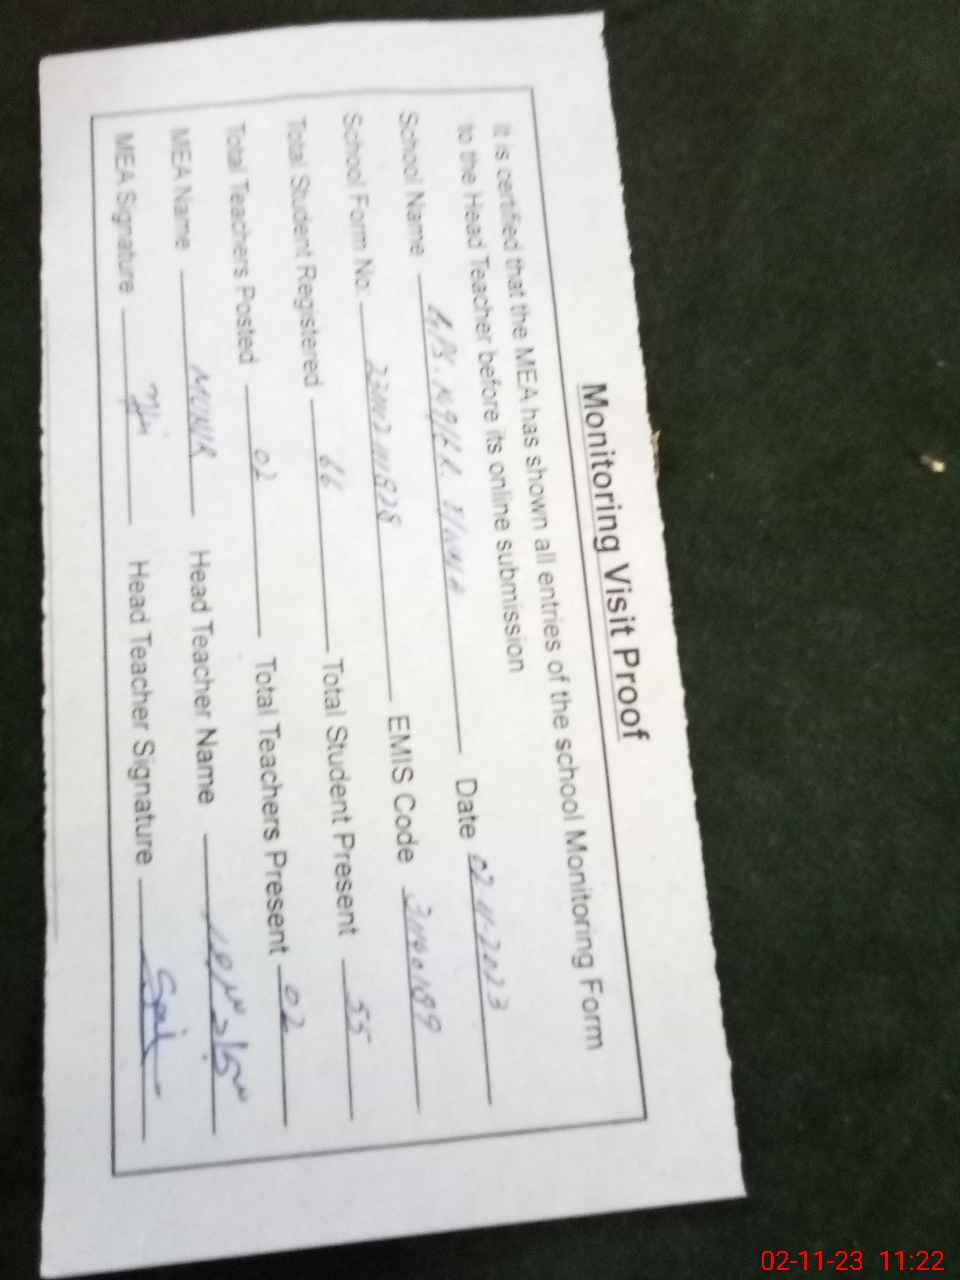 Monitoring Visit Proof
It is certified that the MEA has shown all entries of the school Monitoring Form
to the Head Teacher before its online submission
School Name Date 02-11-2023
School Form No: EMIS Code 31140189
Total Student Registered 66 Total Student Present 55
Total Teachers Posted 02 Total Teachers Present 02
MEA Name MUNIR Head Teacher Name
MEA Signature Head Teacher Signature
02-11-23 11:22